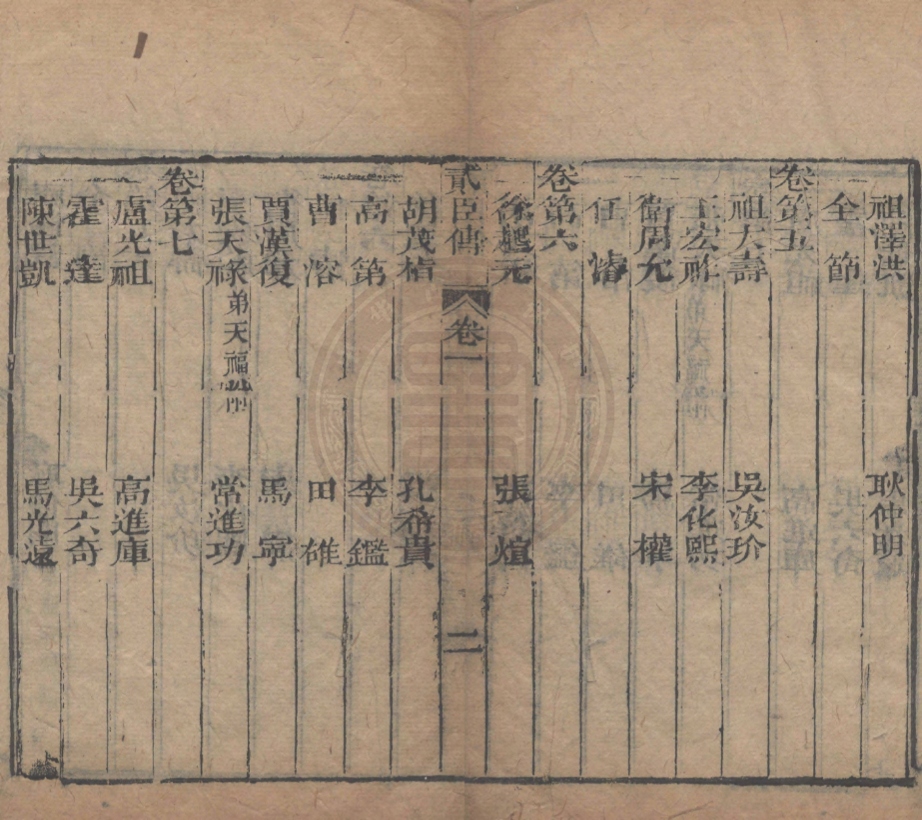 祖澤洪 耿仲明
全節
卷第五
祖大壽 吳汝玠
王宏祚 李化熙
衛周允 宋權
任濬
卷第六
徐起元 張煊
貳臣傳 卷一 二
胡茂楨 孔希貴
高第 李鑑
曹溶 田雄
賈漢復 馬寧
張天祿弟天福附 常進功
卷第七
盧光祖 高進庫
霍達 吳六奇
陳世凱 馬光遠